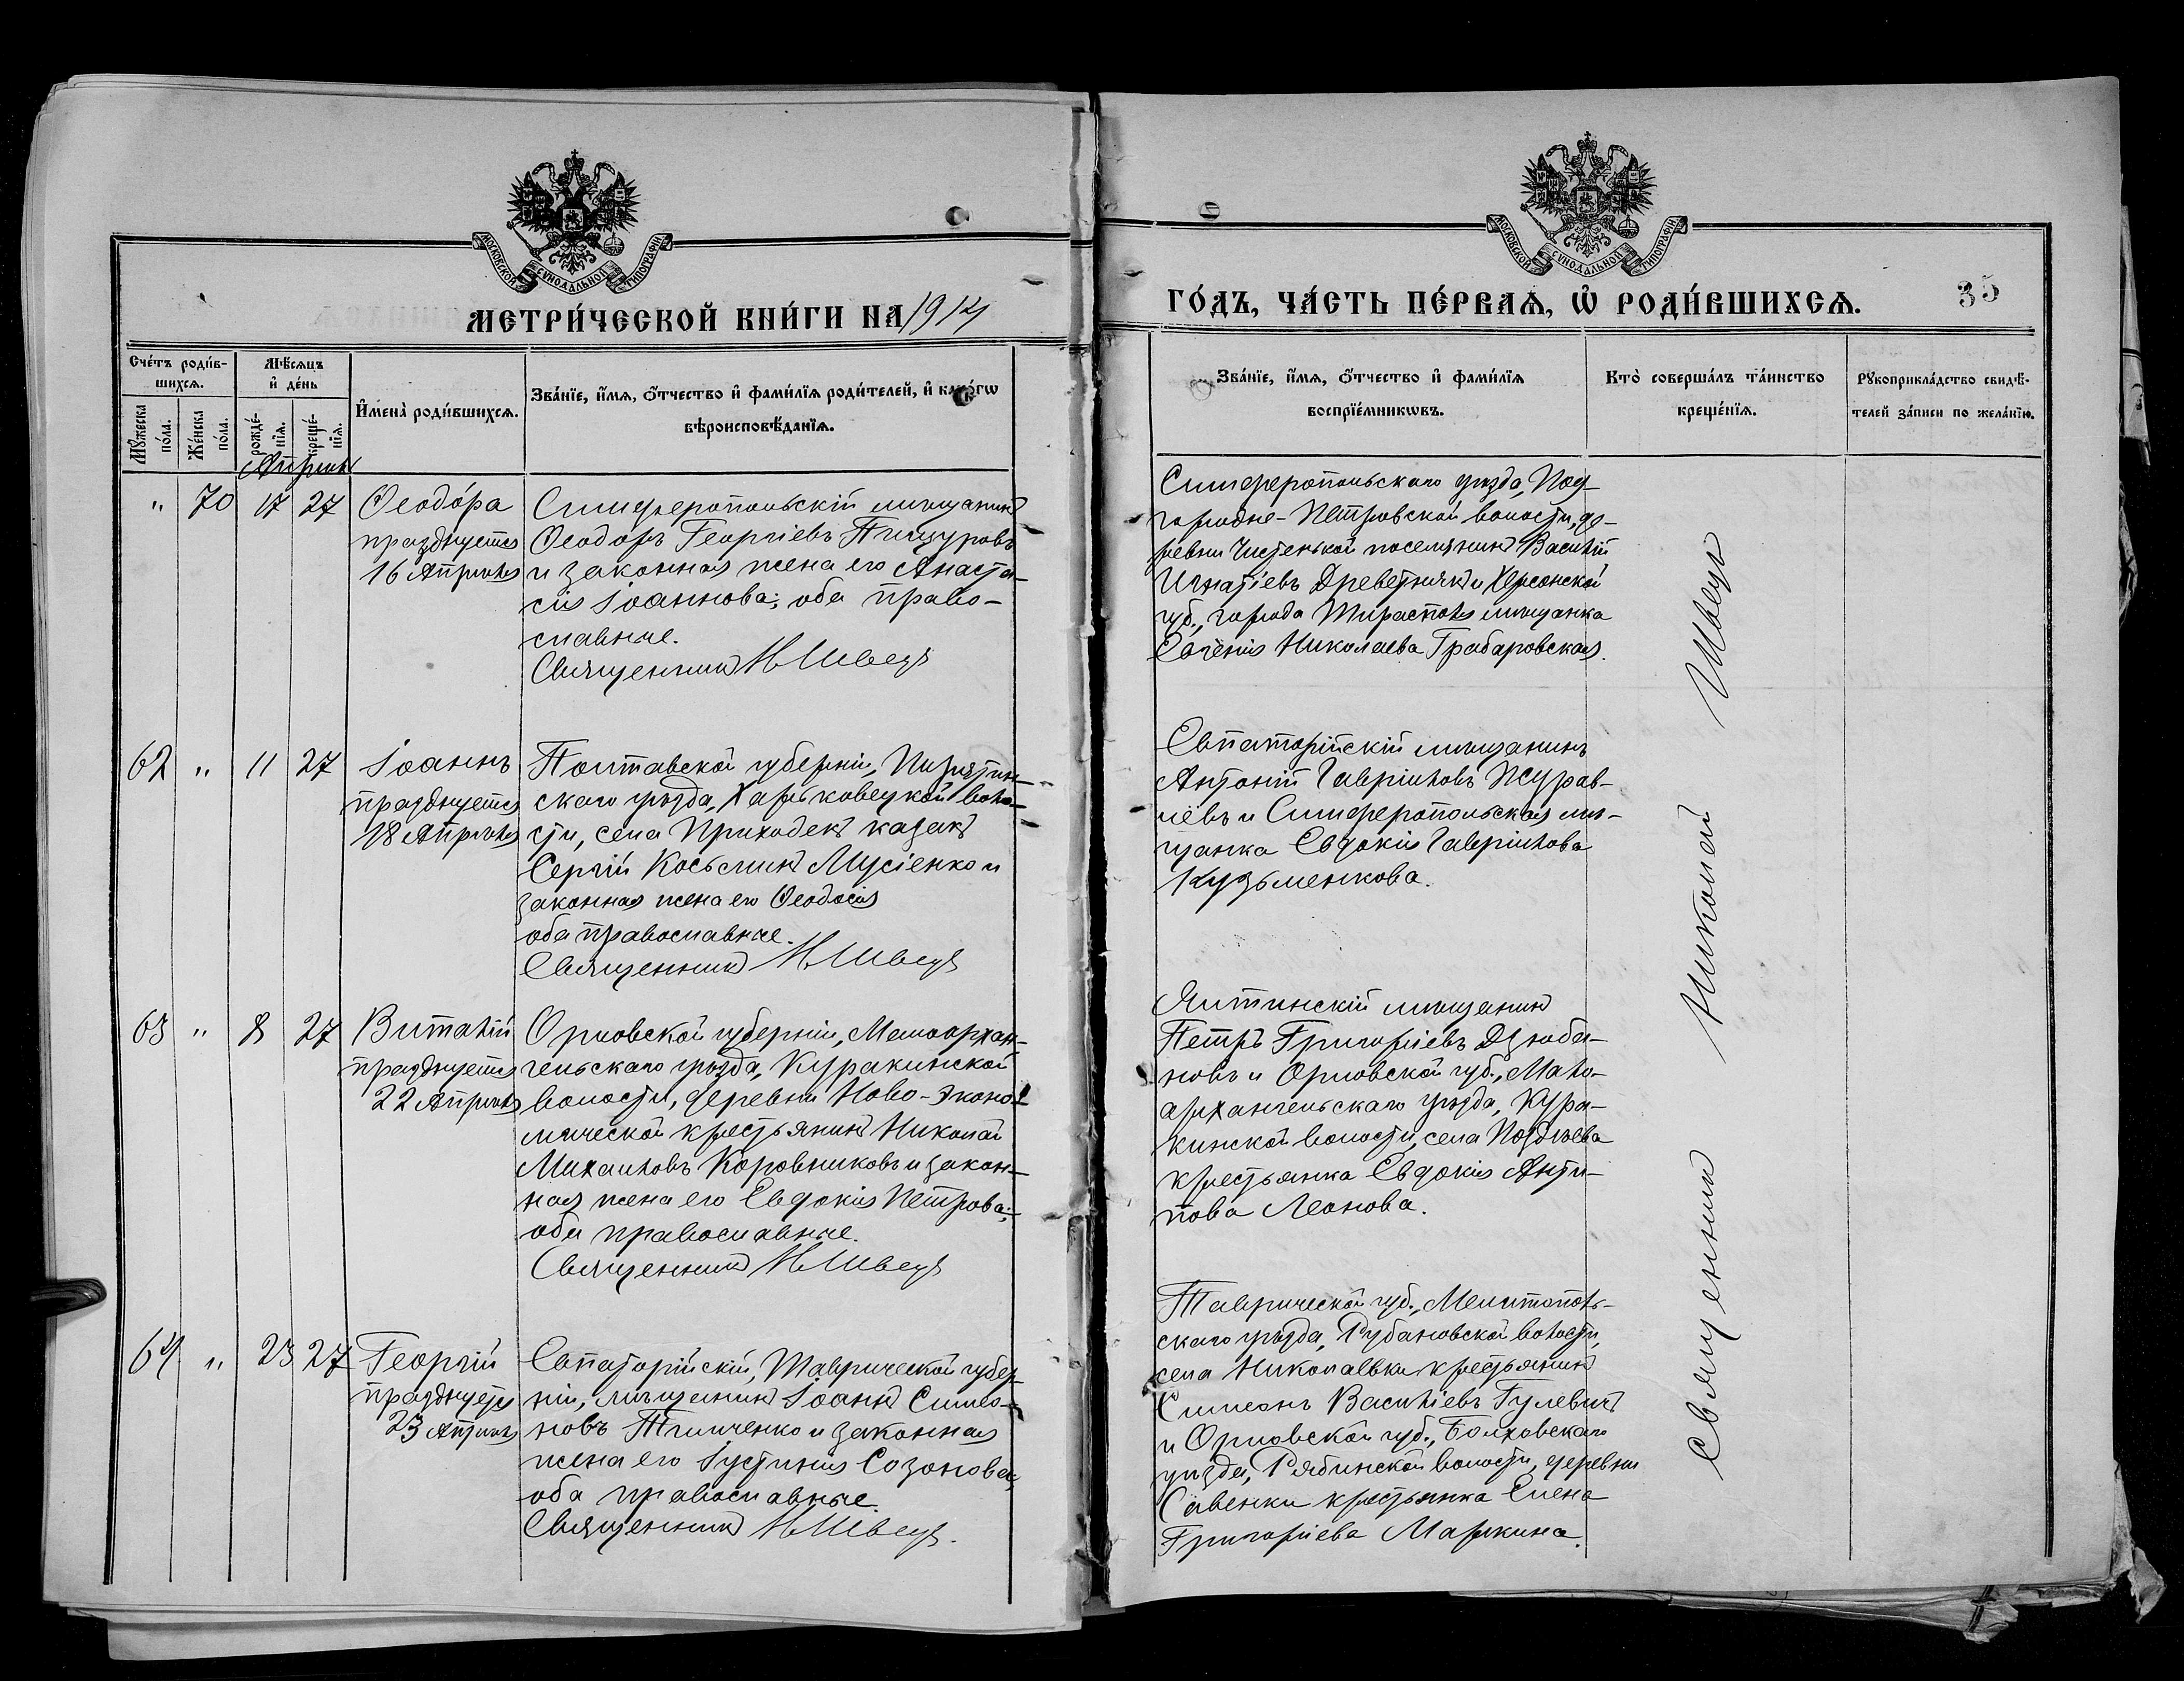 МОСКОВСКОЙ СУНОДАЛЬНОЙ ТИПОГРАФІИ
МЕТРИ́ЧЕСКОЙ КНИ́ГИ НА 1914
Сче́тъ роди́в-
шихсѧ.
Мꙋ́жеска
по́ла.
Же́нска
по́ла.
Мѣ́сѧцъ
и҆ де́нь
рожде́-
нїѧ.
креще́-
нїѧ.
И҆мена̀ роди́вшихсѧ.
Зва́нїе, и҆́мѧ, ѻ҆́тчество и҆ фами́лїѧ роди́телей, и҆ како́гѡ
вѣроисповѣ́данїѧ.
Апрѣль
" 70 17 27
Ѳеодо́ра
празднуется
16 Апрѣля
Симферопольскій мѣщанинъ
Ѳеодоръ Георгіевъ Пищуровъ
и законная жена его Анаста-
сія Іоаннова; оба право-
славные.
Священникъ Н Швецъ
62 " 11 27
Іоаннъ
празднуется
18 Апрѣля
Полтавской губерніи, Пирятин-
скаго уѣзда, Харьковецкой воло-
сти, села Приходекъ казакъ
Сергій Косьминъ Мусіенко и
законная жена его Ѳеодосія
оба православные.
Священникъ Н Швецъ
63 " 8 27
Виталій
празднуется
22 Апрѣля
Орловской губерніи, Малоархан-
гельскаго уѣзда, Куракинской
волости, деревни Ново-Эконо-
мической крестьянинъ Николай
Михаиловъ Коровниковъ и закон-
ная жена его Евдокія Петрова;
оба православные.
Священникъ Н Швецъ
64 " 23 27
Георгій
празднуется
23 Апрѣля
Евпаторійскій, Таврической губер-
ніи, мѣщанинъ Іоаннъ Симео-
новъ Тимченко и законная
жена его Іустинія Созонова,
оба православные.
Священникъ Н Швецъ.
МОСКОВСКОЙ СУНОДАЛЬНОЙ ТИПОГРАФІИ
ГО́ДЪ, ЧА́СТЬ ПЕ́РВАѦ, Ѡ҆ РОДИ́ВШИХСѦ.
35
Зва́нїе, и҆́мѧ, ѻ҆́тчество и҆ фами́лїѧ
воспрїе́мникѡвъ.
Кто̀ соверша́лъ та́инство
креще́нїѧ.
Рꙋкоприкла́дство свидѣ́-
телей за́писи по жела́нїю.
Симферопольскаго уѣзда, Под-
городне-Петровской волости, де-
ревни Чистенькой поселянинъ Василій
Игнатіевъ Древетнякъ и Херсонской
губ., города Тирасполя мѣщанка
Евгенія Николаева Грабаровская.
Евпаторійскій мѣщанинъ
Антоній Гавріиловъ Журав-
левъ и Симферопольская мѣ-
щанка Евдокія Гавріилова
Кузьменкова.
Ялтинскій мѣщанинъ
Петръ Григоріевъ Дзюба-
новъ и Орловской губ., Мало-
архангельскаго уѣзда, Кура-
кинской волости, села Позднѣева
крестьянка Евдокія Анти-
пова Леонова.
Таврической губ., Мелитополь-
скаго уѣзда, Рубановской волости,
села Николаевки крестьянинъ
Симеонъ Василіевъ Гулевичъ
и Орловской губ., Болховскаго
уѣзда, Рябинской волости, деревни
Савенки крестьянка Елена
Григоріева Маркина.
Священникъ Николай Швецъ